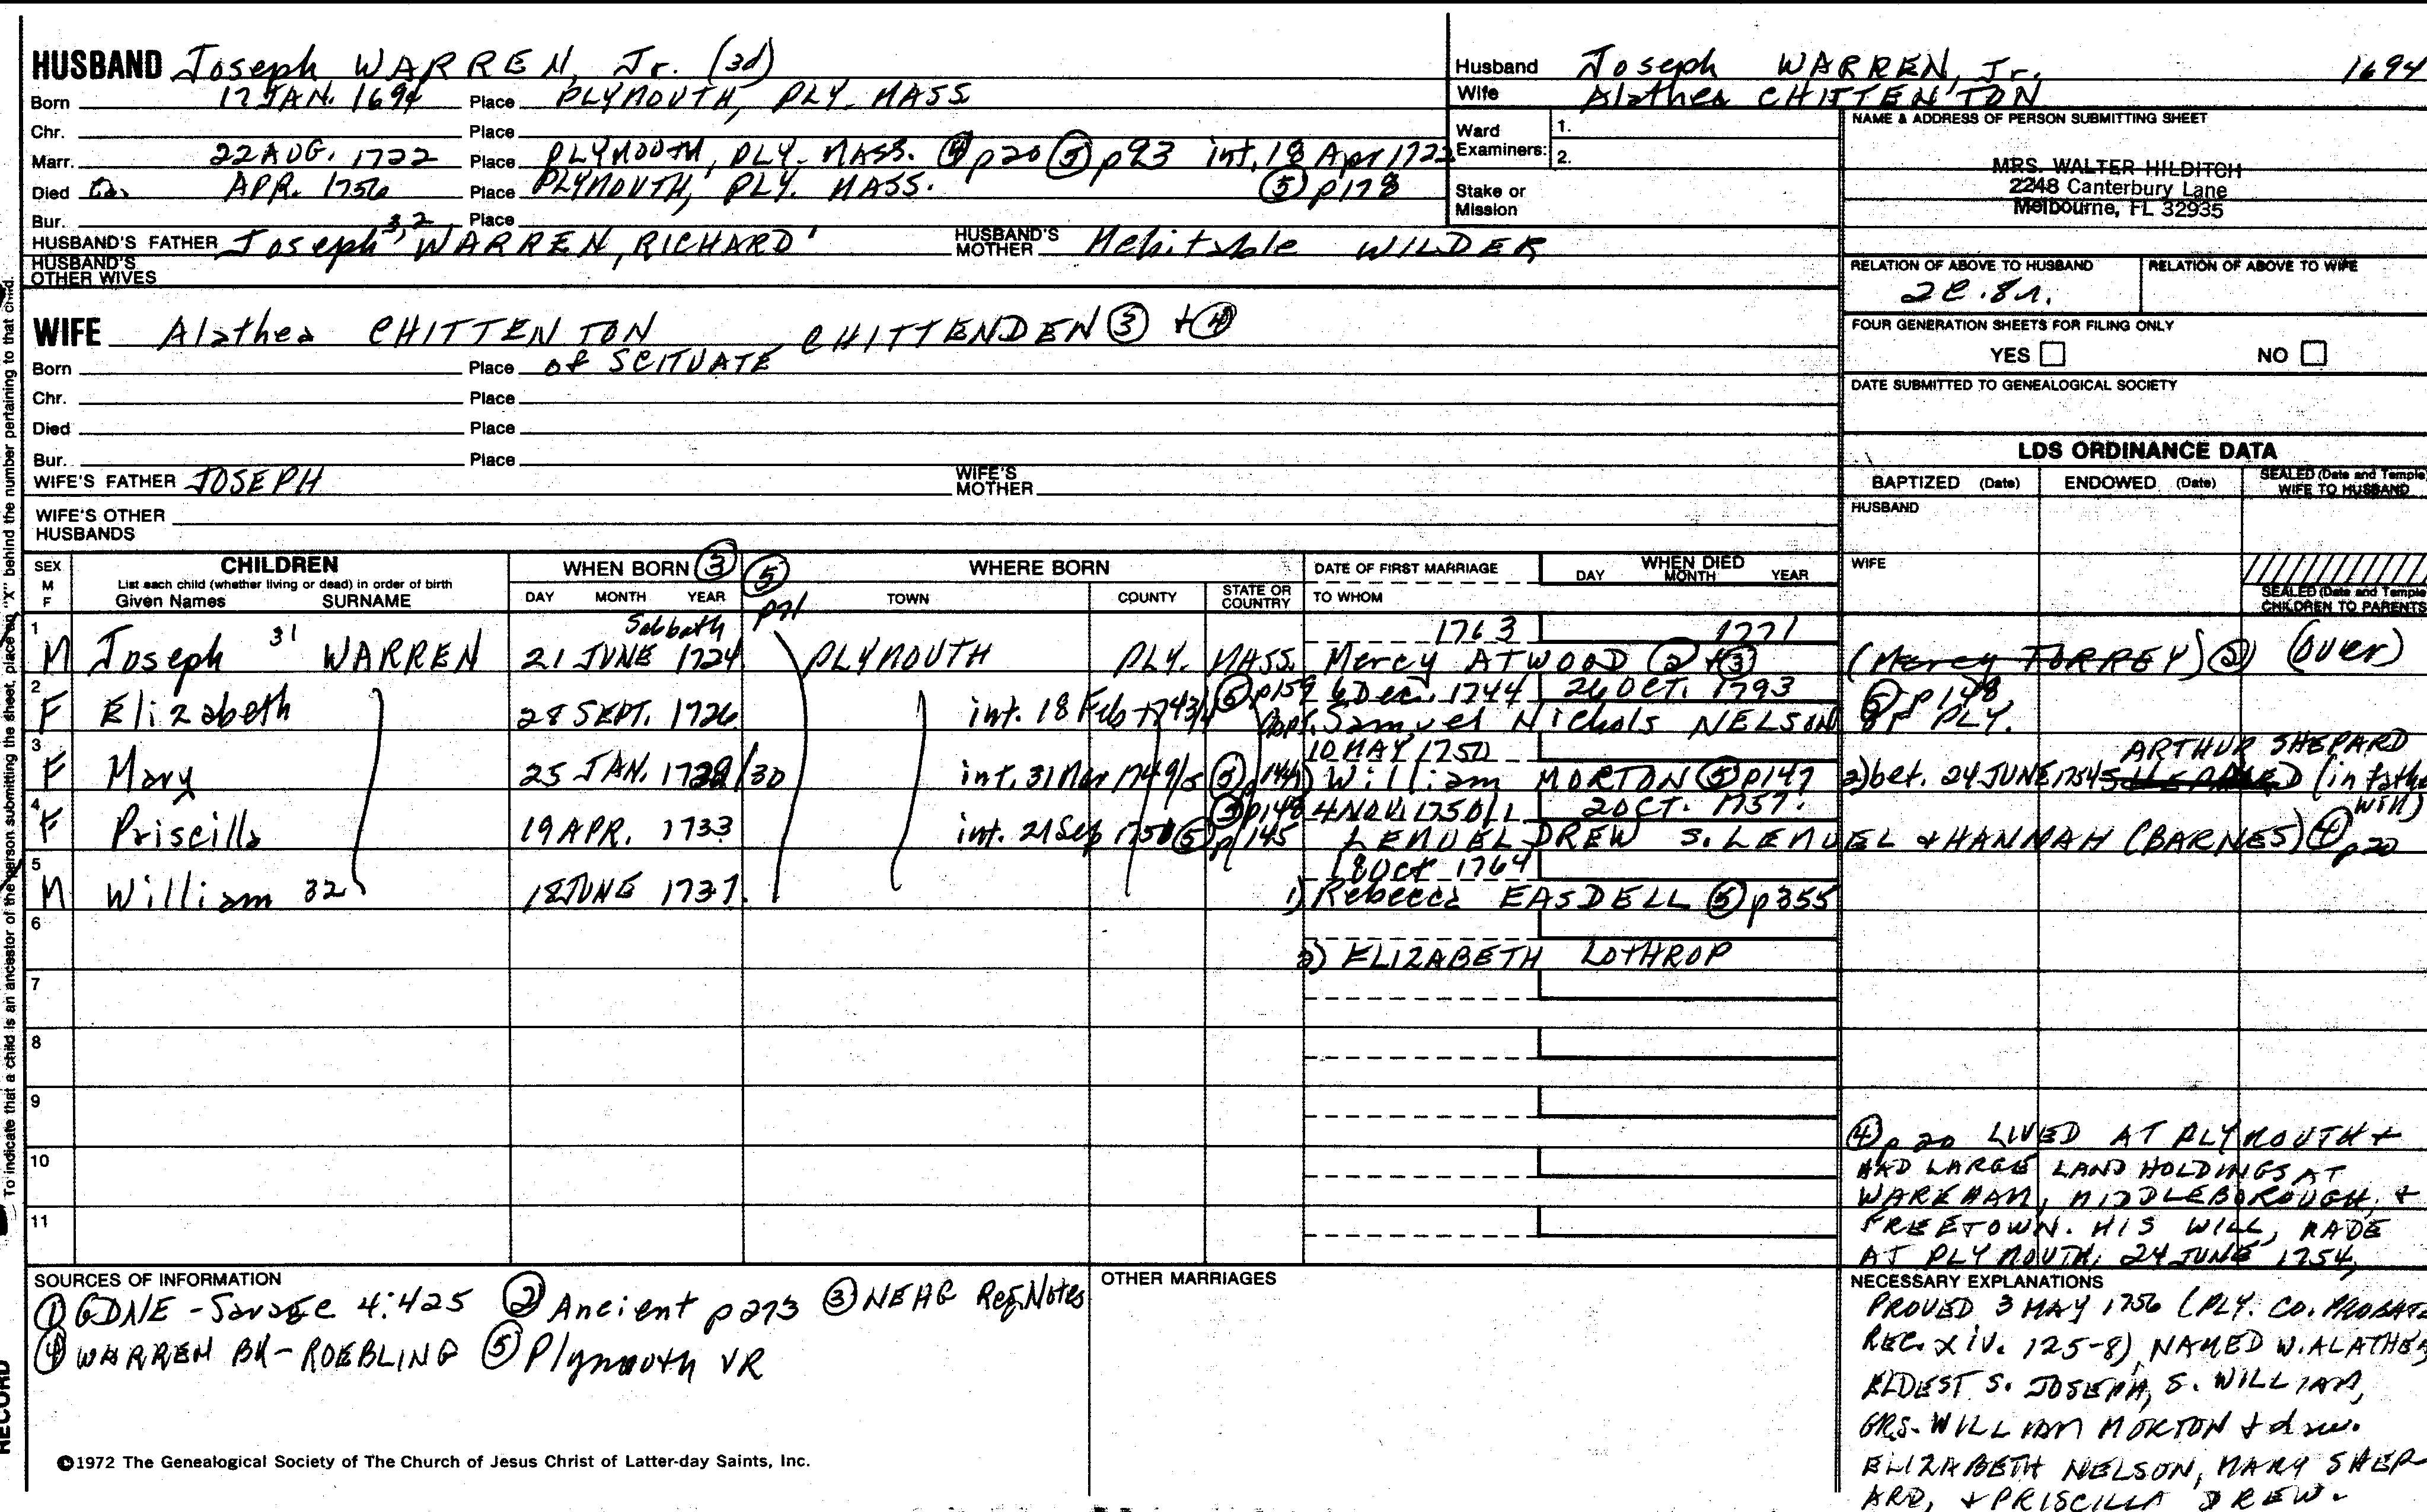 HUSBAND Joseph WARREN, Jr. (3d)
Born 17 JAN. 1694 Place PLYMOUTH, PLY. MASS
Chr. Place
Marr. 22 AUG. 1722 Place PLYMOUTH, PLY. MASS. ④ p20 ⑤ p93 int. 18 Apr 1722
Died APR. 1756 Place PLYMOUTH, PLY. MASS. ⑤ p178
Bur. Place
HUSBAND'S FATHER Joseph 3,2 WARREN, RICHARD' HUSBAND'S MOTHER Mehitable WILDER
HUSBAND'S OTHER WIVES
WIFE Alathea CHITTENTON CHITTENDEN ③ + ④
Born Place of SCITUATE
Chr. Place
Died Place
Bur. Place
WIFE'S FATHER JOSEPH WIFE'S MOTHER
WIFE'S OTHER HUSBANDS
Husband Joseph WARREN, Jr. 1694
Wife Alathea CHITTENTON
Ward Examiners: 1.
2.
Stake or Mission
NAME & ADDRESS OF PERSON SUBMITTING SHEET
MRS. WALTER HILDITCH
2248 Canterbury Lane
Melbourne, FL 32935
RELATION OF ABOVE TO HUSBAND RELATION OF ABOVE TO WIFE
2C.8r.
FOUR GENERATION SHEETS FOR FILING ONLY
YES NO
DATE SUBMITTED TO GENEALOGICAL SOCIETY
LDS ORDINANCE DATA
BAPTIZED (Date) ENDOWED (Date) SEALED (Date and Temple) WIFE TO HUSBAND
HUSBAND
WIFE
SEALED (Date and Temple) CHILDREN TO PARENTS
SEX M F CHILDREN WHEN BORN ③ ⑤ p71 WHERE BORN DATE OF FIRST MARRIAGE WHEN DIED
List each child (whether living or dead) in order of birth
Given Names SURNAME DAY MONTH YEAR TOWN COUNTY STATE OR COUNTRY TO WHOM DAY MONTH YEAR
Sabbath 1763 1771
1 M Joseph 31 WARREN 21 JUNE 1724 PLYMOUTH PLY. MASS. Mercy ATWOOD ② + ③ (Mercy TORREY) ② (over)
⑤ p159 6 Dec. 1744 26 OCT. 1793 ⑤ p148
2 F Elizabeth 28 SEPT. 1726 int. 18 Feb 1743/4 Capt. Samuel Nichols NELSON of PLY.
10 MAY 1750 ARTHUR SHEPARD
3 F Mary 25 JAN. 1729/30 int. 31 Mar 1749/5 ⑤ p144 1) William MORTON ⑤ p147 2) bet. 24 JUNE 1754 SHEPARD (in father will)
⑤ p148 4 NOV. 1750/1 2 OCT. 1757.
4 F Priscilla 19 APR. 1733 int. 21 Sep 1750 ⑤ p145 LEMUEL DREW S. LEMUEL & HANNAH (BARNES) ④ p20
18 Oct 1764
5 M William 32 18 JUNE 1737. 1) Rebecca EASDELL ⑤ p355
6 2) ELIZABETH LOTHROP
7
8
9
10
11
④ p 20 LIVED AT PLYMOUTH +
HAD LARGE LAND HOLDINGS AT
WAREHAM, MIDDLEBOROUGH, +
FREETOWN. HIS WILL, MADE
AT PLYMOUTH, 24 JUNE 1754,
NECESSARY EXPLANATIONS
PROVED 3 MAY 1756 (PLY. CO. PROBATE
REC. XIV. 125-8), NAMED W. ALATHEA,
ELDEST S. JOSEPH, S. WILLIAM,
GRS. WILLIAM MORTON + daus.
ELIZABETH NELSON, MARY SHEP-
ARD, + PRISCILLA DREW.
SOURCES OF INFORMATION
① GDNE - Savage 4:425 ② Ancient p 273 ③ NEHG Reg. Notes
④ WARREN BK - ROEBLING ⑤ Plymouth VR
OTHER MARRIAGES
©1972 The Genealogical Society of The Church of Jesus Christ of Latter-day Saints, Inc.
To indicate that a child is an ancestor of the person submitting the sheet, place an "X" behind the number pertaining to that child.
RECORD